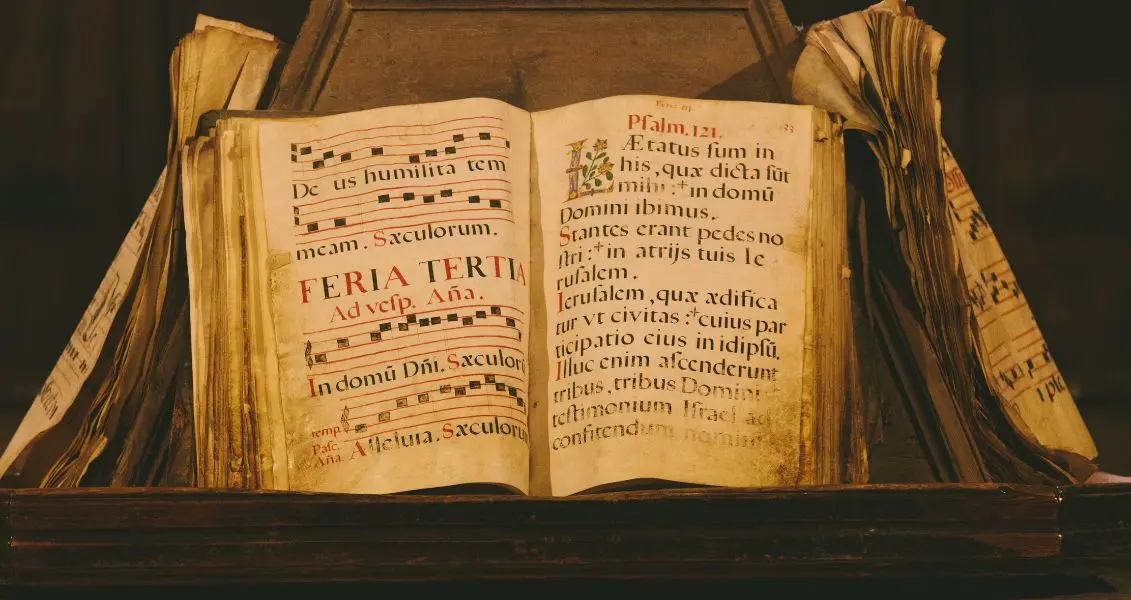 De us humilita tem
meam. Sæculorum.
FERIA TERTIA
Ad vesp. Aña.
In domũ Dñi. Sæculoru
temp.
Pasc.
Aña. Alleluia. Sæculorum
Feria iij.
Pſalm. 121. 33
LÆtatus ſum in
his, quæ dicta ſũt
mihi :⁺ in domũ
Domini ibimus.
Stantes erant pedes no
ſtri :⁺ in atrijs tuis Ie
ruſalem.
Ieruſalem, quæ ædifica
tur vt civitas :⁺ cuius par
ticipatio eius in idipſũ.
Illuc enim aſcenderunt
tribus, tribus Domini
teſtimonium Iſrael ad
confitendum nomini